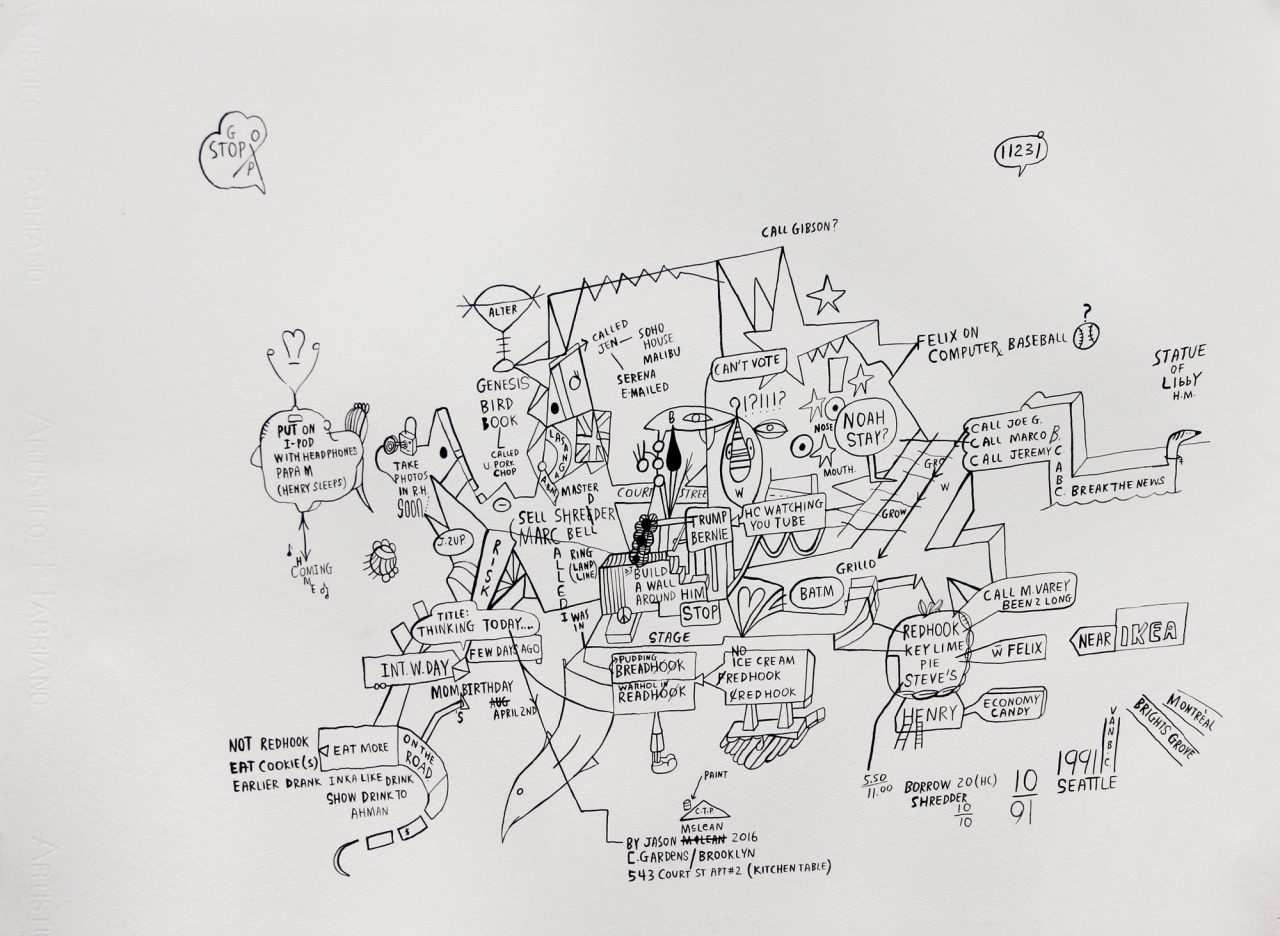 G O
STOP
P
11231
CALL GIBSON?
ALTER
CALLED
JEN
SOHO
HOUSE
MALIBU
SERENA
E-MAILED
CAN'T VOTE
!?!!!?
NOSE
MOUTH.
NOAH
STAY?
FELIX ON
COMPUTER BASEBALL
?
STATUE
OF
LIBBY
H.M.
GENESIS
BIRD
BOOK
L
CALLED
U. PORK
CHOP
LASANGA
PUT ON
I-POD
WITH HEADPHONES
PAPA M
(HENRY SLEEPS)
COMING
HOME
TAKE
PHOTOS
IN R.H.
SOON
J.2UP.
B
W
COURT STREET
MASTER
SELL SHREDDER
MARC BELL
CALLED
RING
(LAND
LINE)
I WAS
IN
RISK
TRUMP
BERNIE
HC WATCHING
YOU TUBE
BUILD
A WALL
AROUND HIM
STOP
STAGE
GROW
GROW
CALL JOE G.
CALL MARCO B.
CALL JEREMY
C.
A
B
C.
BREAK THE NEWS
GRILLO
BATM
CALL M. VAREY
BEEN 2 LONG
REDHOOK
KEY LIME
PIE
STEVE'S
W FELIX
NEAR IKEA
HENRY
ECONOMY
CANDY
TITLE:
THINKING TODAY....
FEW DAYS AGO
INT. W. DAY
MOM BIRTHDAY
AUG
APRIL 2ND
$
PUDDING
BREADHOOK
WARHOL IN
READHOOK
NO
ICE CREAM
REDHOOK
REDHOOK
NOT REDHOOK
EAT COOKIE(S)
EAT MORE
ON THE
ROAD
EARLIER DRANK INKA LIKE DRINK
SHOW DRINK TO
AHMAN
$
PAINT
C.T.P
McLEAN
BY JASON McLEAN 2016
C. GARDENS/BROOKLYN
543 COURT ST APT #2 (KITCHEN TABLE)
5.50
11.00
BORROW 20 (HC)
SHREDDER
10
10
10
91
1991
SEATTLE
VAN BC
MONTRÉAL
BRIGHTS GROVE